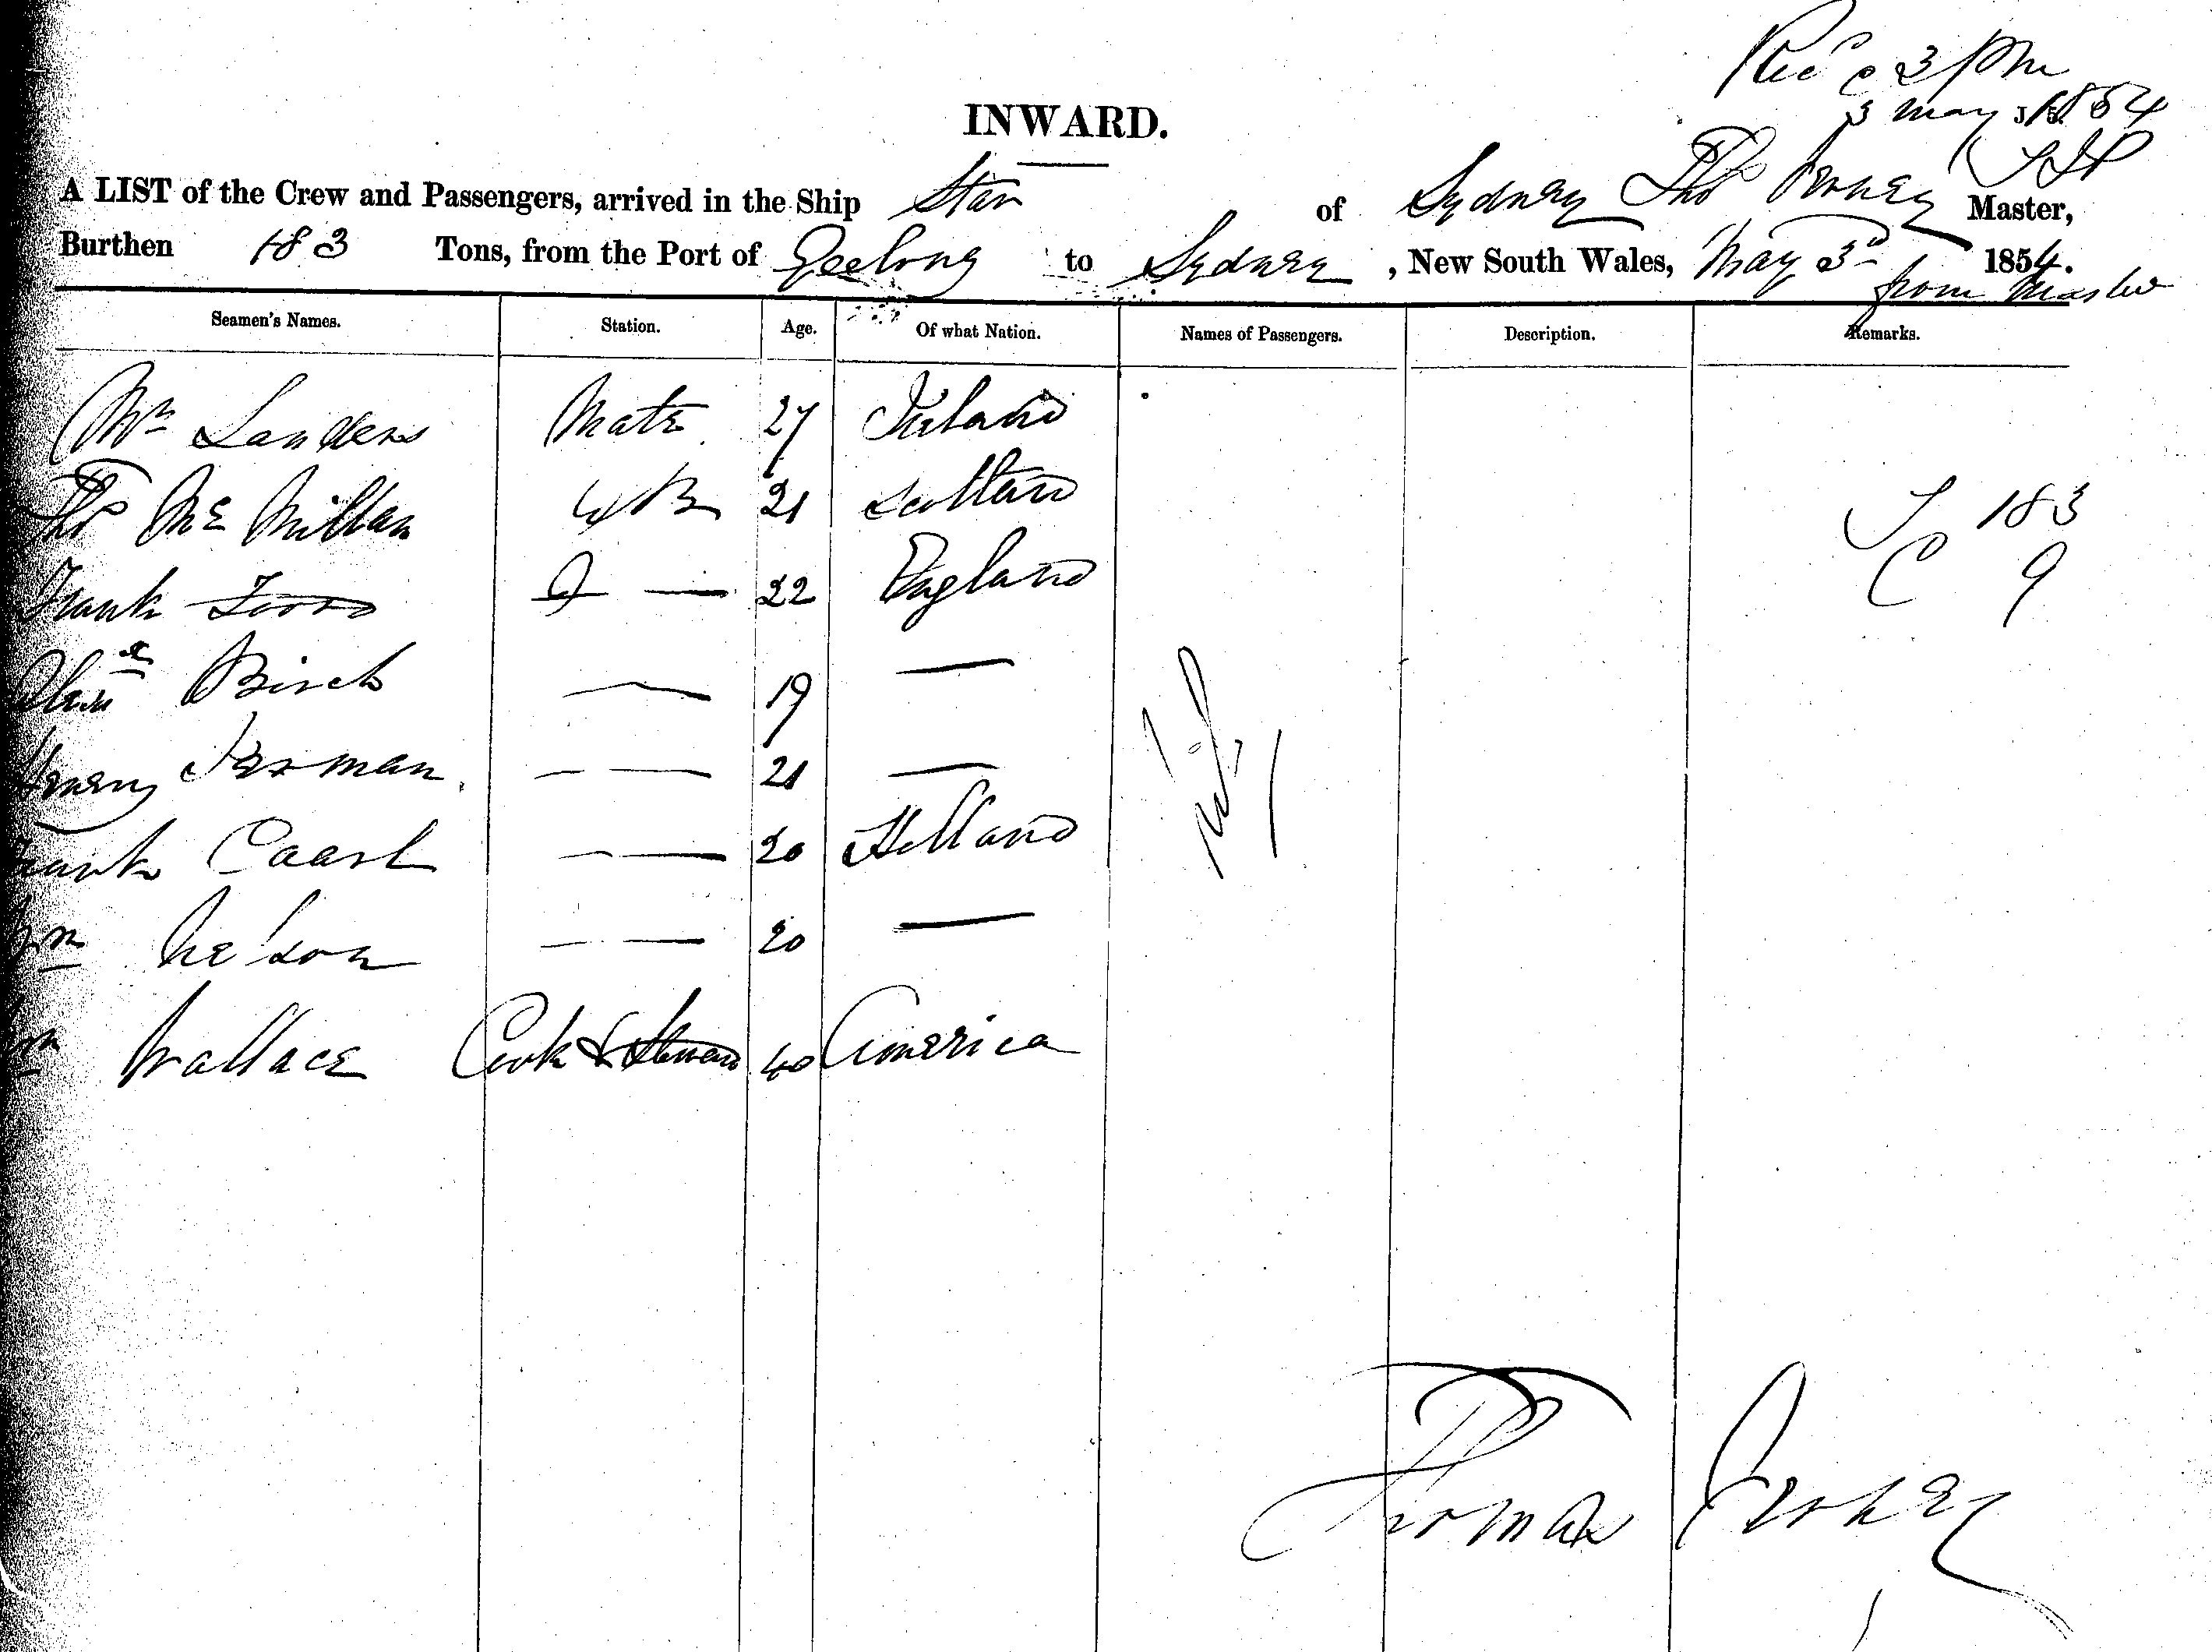 Rec^d @ 3 pm
3 May 1854
INWARD.
A LIST of the Crew and Passengers, arrived in the Ship Star of Sydney Tho^s Master,
Burthen 183 Tons, from the Port of Geelong to Sydney, New South Wales, May 3^d 1854.
from Master
Seamen's Names. Station. Age. Of what Nation. Names of Passengers. Description. Remarks.
W^m Landers Mate 27 Ireland
Tho^s M^c Millan AB 21 Scotland T 183
Frank D — 22 England C 9
Alex^r Birch — 19 —
Henry Jerman — — 21 —
Frank — — 20 Holland
W^m Nelson — — 20 —
W^m Wallace Cook & Steward 40 America
Thomas